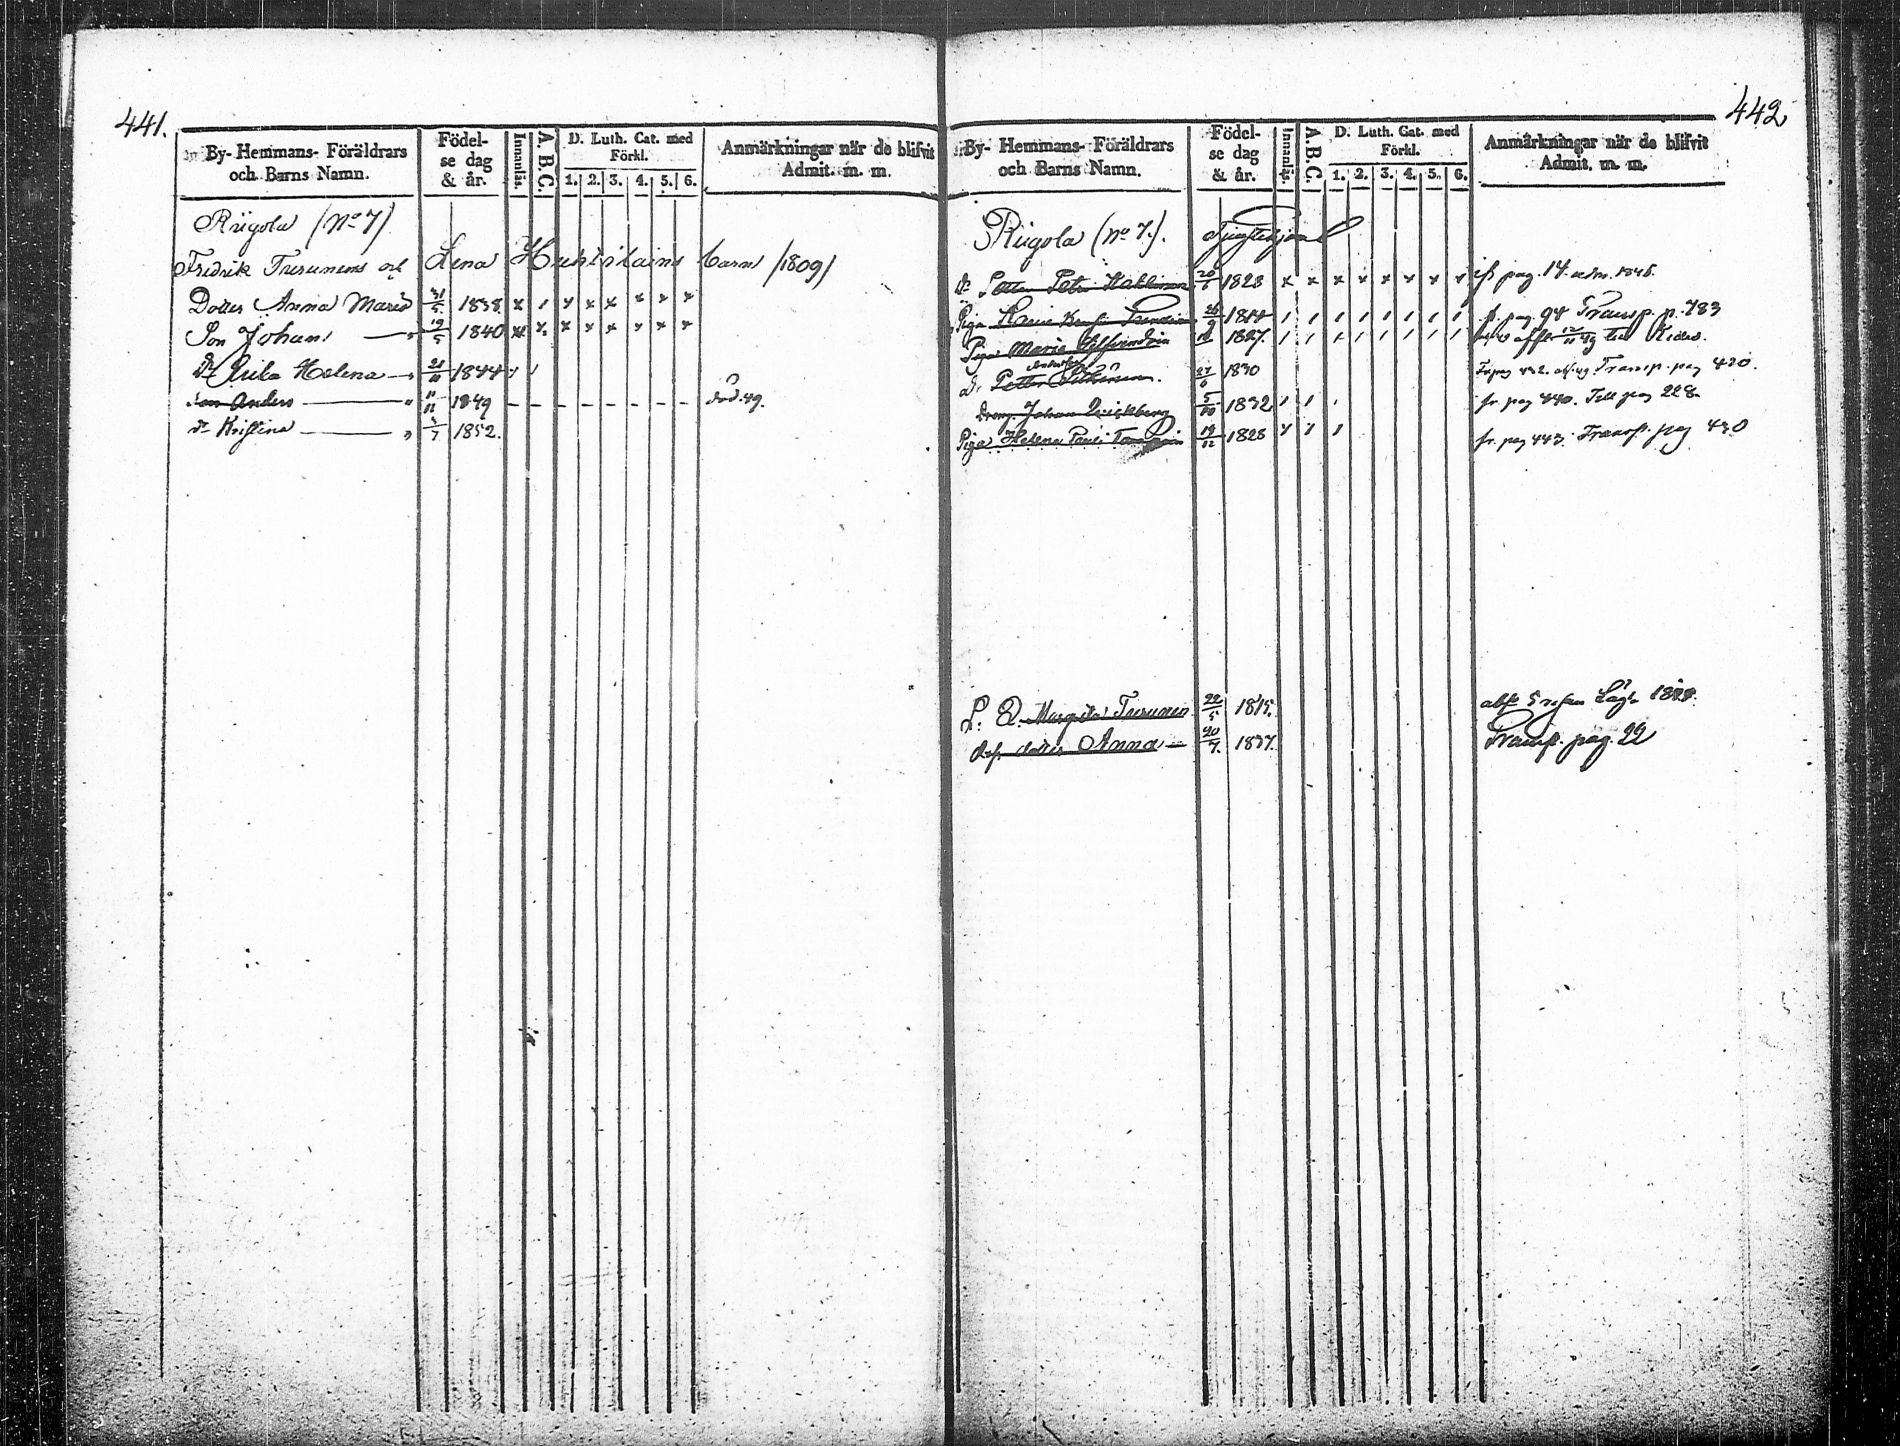 441.
By- Hemmans- Föräldrars och Barns Namn. Födelse dag & år. Innanläs. A. B. C. D. Luth. Cat. med Förkl. 1. 2. 3. 4. 5. 6. Anmärkningar när de blifvit Admit. m. m.
Riigola (No 7)
Fredrik Turunens och Lena Huhtilains barn /1809/
Dotter Anna Maria 31/5 1838 x / x x x x x x
Son Johan — " 19/5 1840 x x x x x x x x
Dr Ulrika Helena — " 21/11 1844 / /
Son Anders — " 11/11 1849 – – – – – – – – död. 49.
Dr Kristina — " 3/7 1852.
442
By- Hemmans- Föräldrars och Barns Namn. Födelse dag & år. Innanläs. A. B. C. D. Luth. Cat. med Förkl. 1. 2. 3. 4. 5. 6. Anmärkningar när de blifvit Admit. m. m.
Riigola (No 7.). Tjenstehjon
Dr Petter Petri Hakkinen 20/5 1828 x x x x x x x x fr pag. 14. adm. 1846.
Piga 26/9 1814 / / / / / / / / fr. pag. 94 Transp. p. 783
Piga Maria 1827. / / / / / / / / 12/11 49 till Kides.
Dr Petter 27/6 1830 Transp. pag 420.
Dreng Johan 5/10 1832 / / / fr. pag 440. Till pag 228
Piga Helena 19/12 1828 / / / fr. pag 443. Transp. pag 430
L. Q. Margeta Turunen 22/5 1815.
dess dotter Anna — 20/7. 1837. Transp. pag. 22